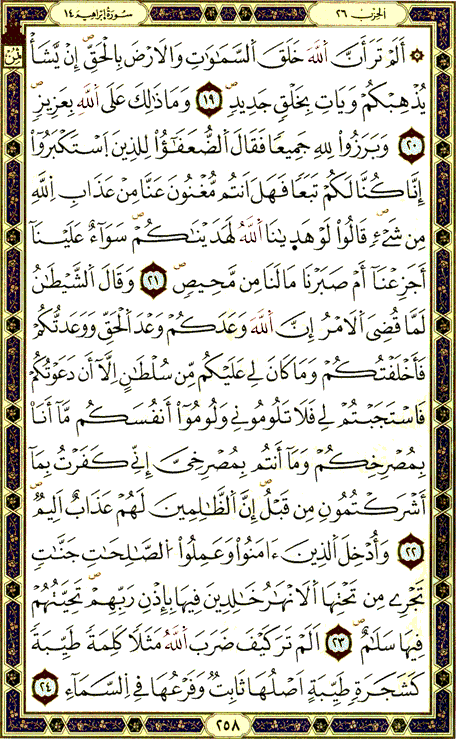 سُورَةُ إِبْرَاهِيمَ ١٤
الحزب ٢٦
ثمن
۞ أَلَمْ تَرَ أَنَّ اَللَّهَ خَلَقَ اَلسَّمَٰوَٰتِ وَالَارْضَ بِالْحَقِّ إِنْ يَّشَأْ
يُذْهِبْكُمْ وَيَاتِ بِخَلْقٖ جَدِيدٖ ١٩ وَمَا ذَٰلِكَ عَلَى اَللَّهِ بِعَزِيزٖ
٢٠ وَبَرَزُواْ لِلهِ جَمِيعاٗ فَقَالَ اَلضُّعَفَٰٓؤُاْ لِلذِينَ اَسْتَكْبَرُوٓاْ
إِنَّا كُنَّا لَكُمْ تَبَعاٗ فَهَلَ اَنتُم مُّغْنُونَ عَنَّا مِنْ عَذَابِ اِللَّهِ
مِن شَےْءٖ قَالُواْ لَوْ هَدَيٰنَا اَللَّهُ لَهَدَيْنَٰكُمْ سَوَآءٌ عَلَيْنَآ
أَجَزِعْنَآ أَمْ صَبَرْنَا مَا لَنَا مِن مَّحِيصٖ ٢١ وَقَالَ اَلشَّيْطَٰنُ
لَمَّا قُضِيَ اَلَامْرُ إِنَّ اَللَّهَ وَعَدَكُمْ وَعْدَ اَلْحَقِّ وَوَعَدتُّكُمْ
فَأَخْلَفْتُكُمْ وَمَا كَانَ لِي عَلَيْكُم مِّن سُلْطَٰنٍ اِلَّآ أَن دَعَوْتُكُمْ
فَاسْتَجَبْتُمْ لِي فَلَا تَلُومُونِي وَلُومُوٓاْ أَنفُسَكُم مَّآ أَنَا
بِمُصْرِخِكُمْ وَمَآ أَنتُم بِمُصْرِخِيَّ إِنِّي كَفَرْتُ بِمَآ
أَشْرَكْتُمُونِ مِن قَبْلُ إِنَّ اَلظَّٰلِمِينَ لَهُمْ عَذَابٌ اَلِيمٌ
٢٢ وَأُدْخِلَ اَلذِينَ ءَامَنُواْ وَعَمِلُواْ اُلصَّٰلِحَٰتِ جَنَّٰتٖ
تَجْرِي مِن تَحْتِهَا اَلَانْهَٰرُ خَٰلِدِينَ فِيهَا بِإِذْنِ رَبِّهِمْ تَحِيَّتُهُمْ
فِيهَا سَلَٰمٌ ٢٣ اَلَمْ تَرَ كَيْفَ ضَرَبَ اَللَّهُ مَثَلاٗ كَلِمَةٗ طَيِّبَةٗ
كَشَجَرَةٖ طَيِّبَةٍ اَصْلُهَا ثَابِتٌ وَفَرْعُهَا فِي اِلسَّمَآءِ ٢٤
٢٥٨